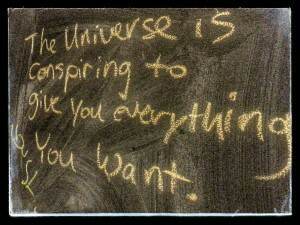 The Universe is
conspiring to
give you everything
You Want.